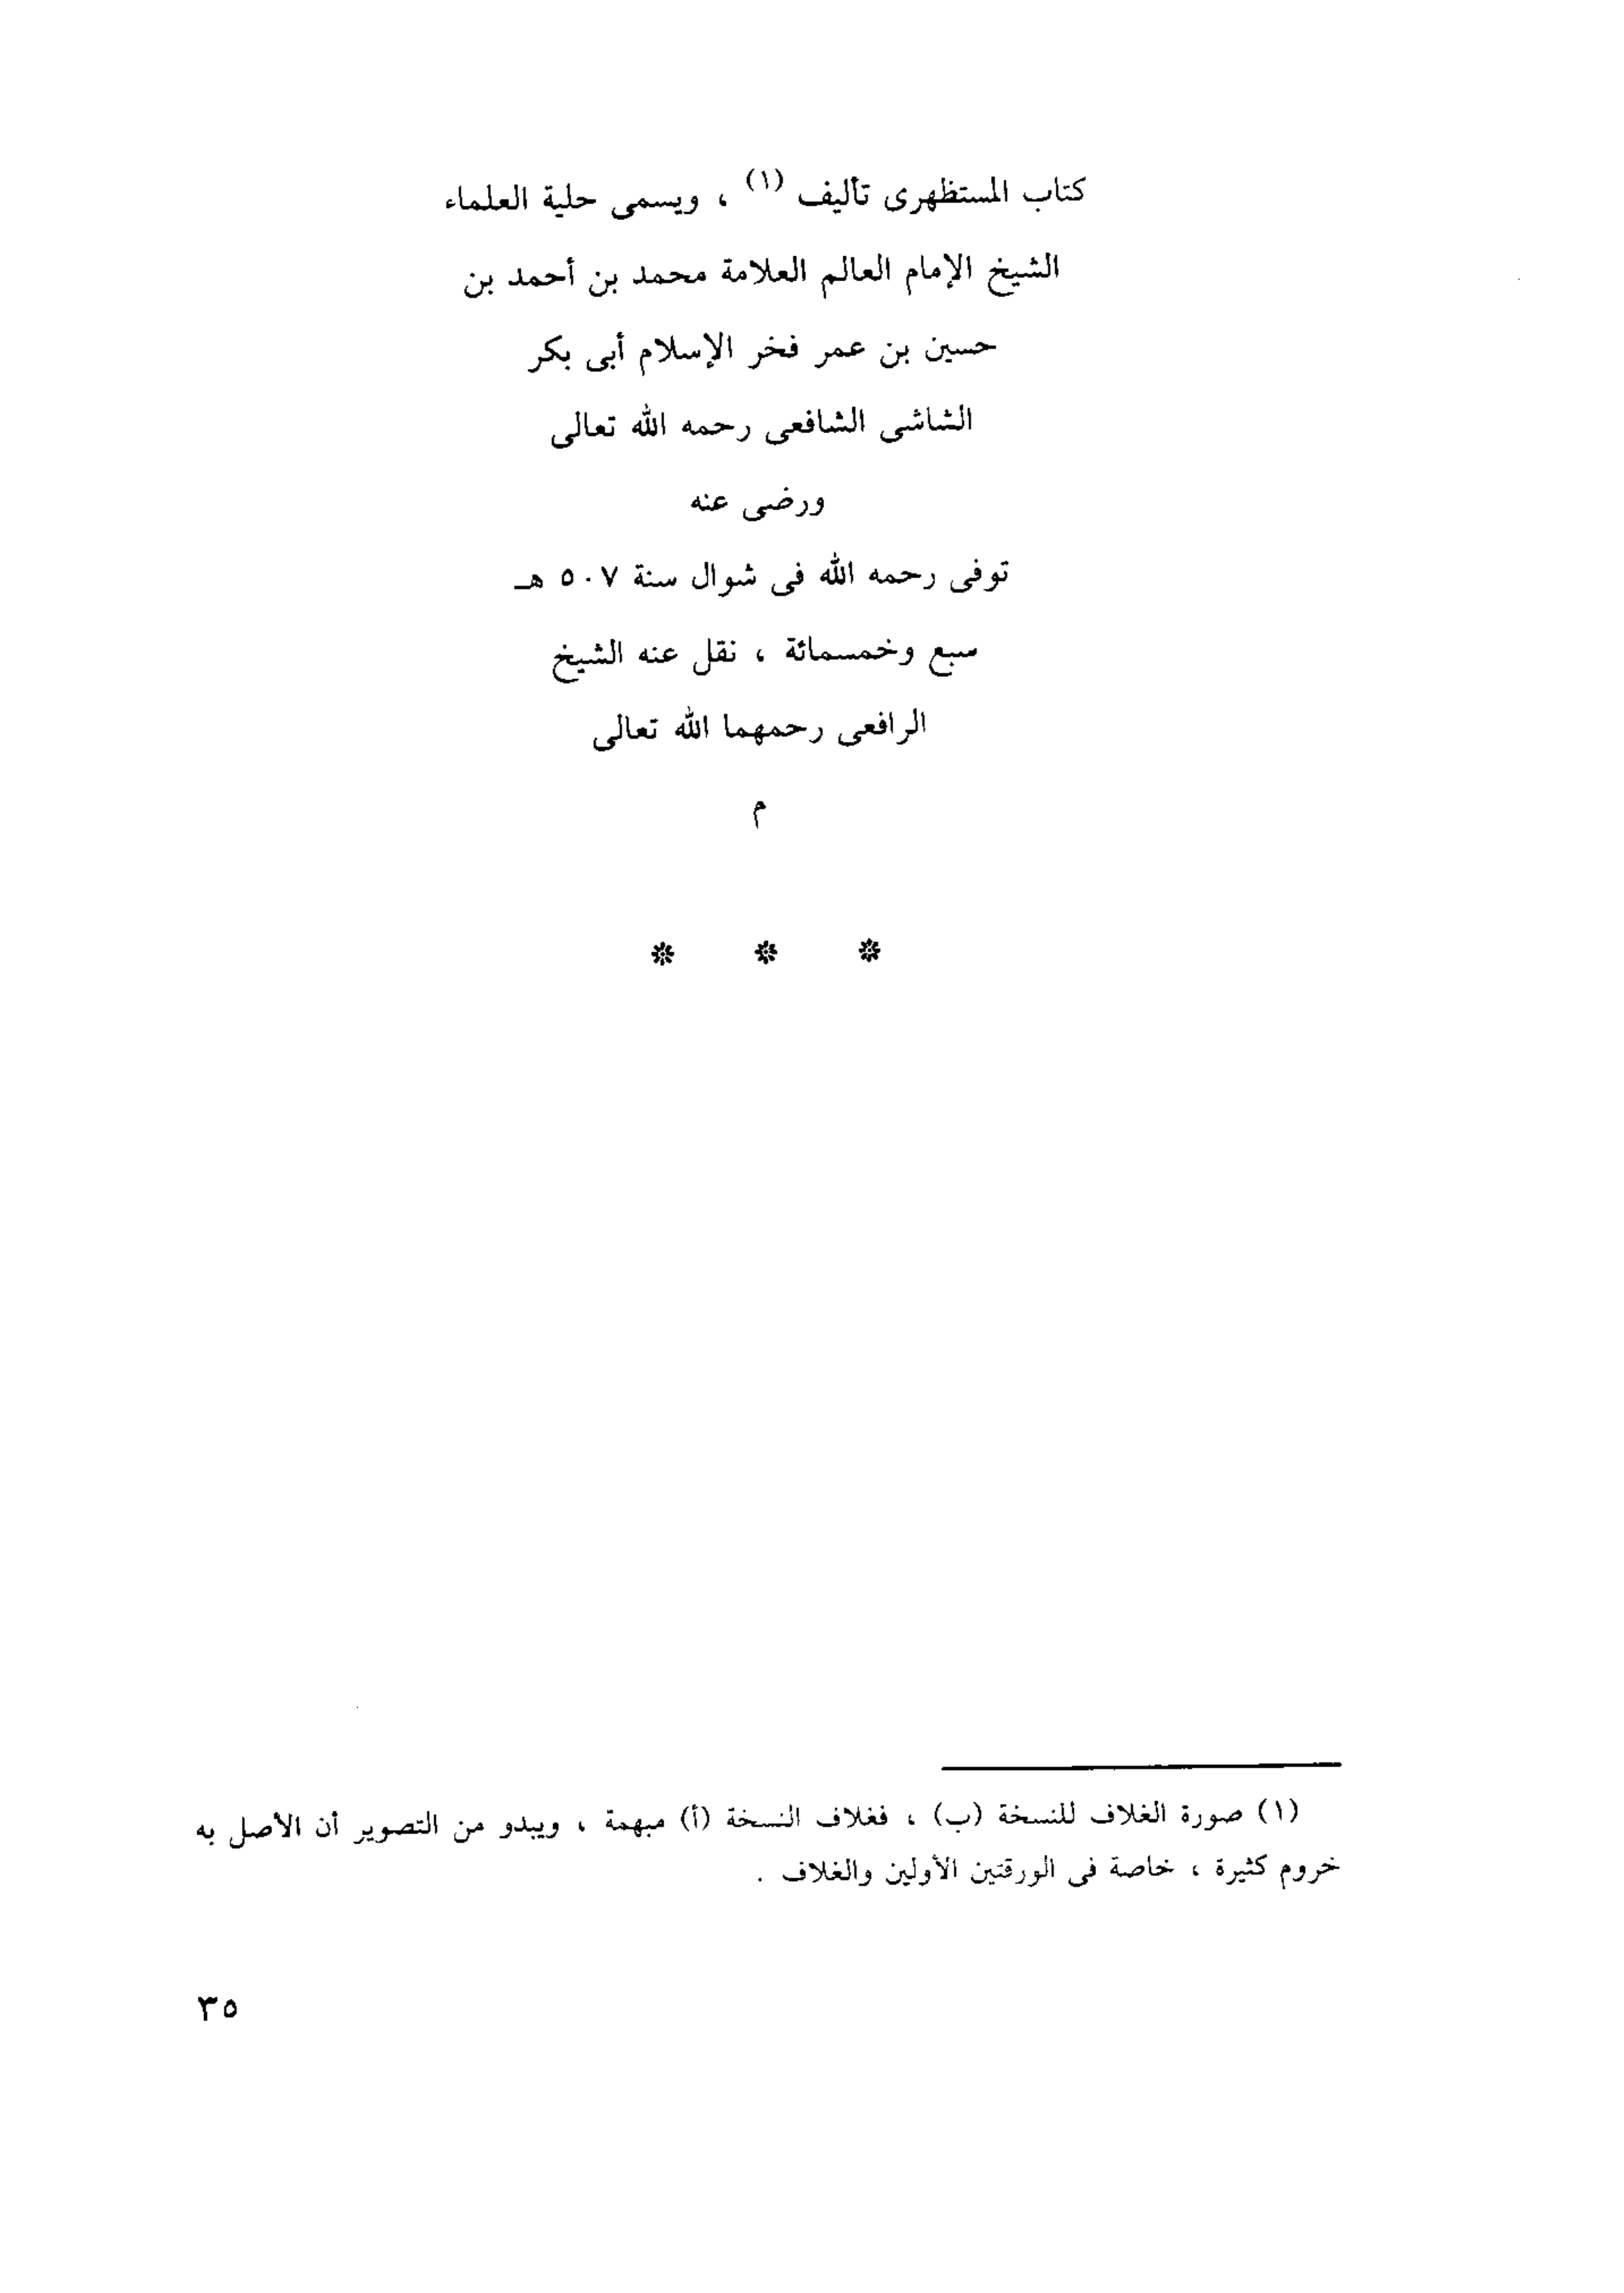 كتاب المستظهرى تأليف (١) ، ويسمى حلية العلماء
الشيخ الإمام العالم العلامة محمد بن أحمد بن
حسين بن عمر فخر الإسلام أبى بكر
الشاشى الشافعى رحمه الله تعالى
ورضى عنه
توفى رحمه الله فى شوال سنة ٥٠٧ هـ
سبع وخمسمائة ، نقل عنه الشيخ
الرافعى رحمهما الله تعالى
م
* * *
(١) صورة الغلاف للنسخة (ب) ، فغلاف النسخة (أ) مبهمة ، ويبدو من التصوير أن الأصل به
خروم كثيرة ، خاصة فى الورقتين الأولين والغلاف .
٣٥